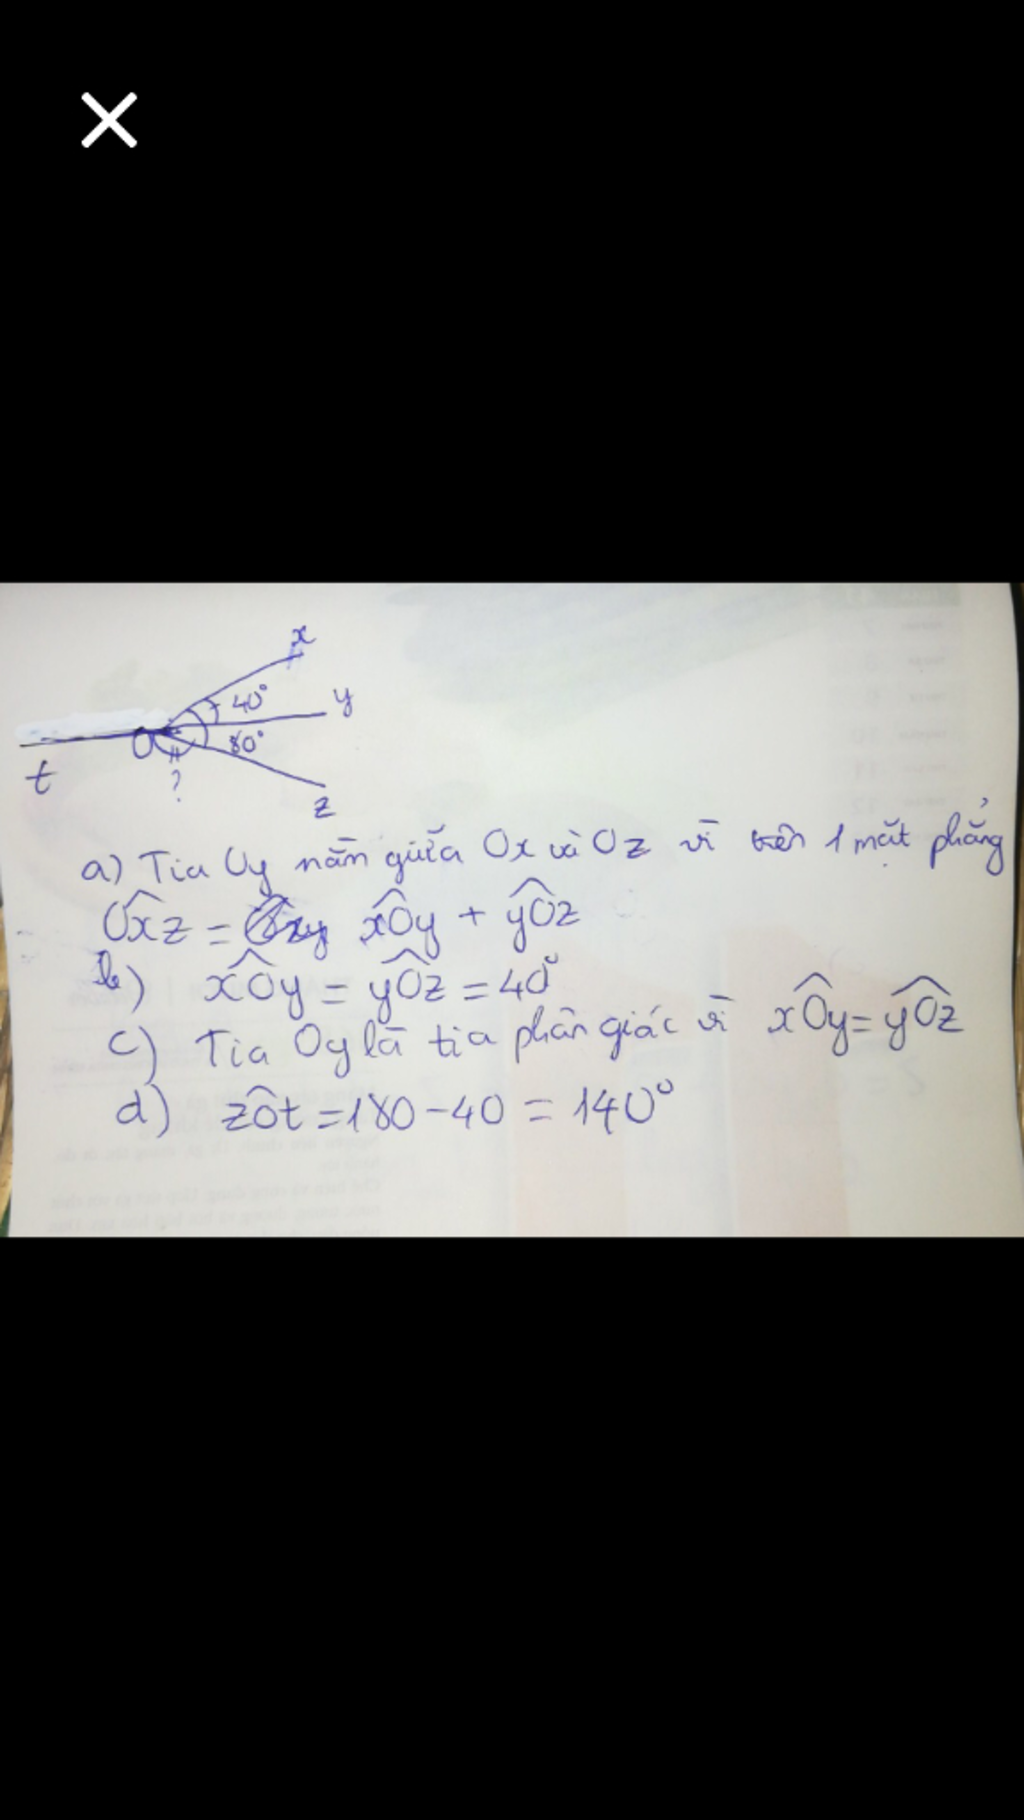 x
40°
y
O
80°
t
?
z
a) Tia Oy nằm giữa Ox và Oz vì trên 1 mặt phẳng
Ox̂z = xÔy + yÔz
b) xÔy = yÔz = 40°
c) Tia Oy là tia phân giác vì xÔy = yÔz
d) zôt = 180 - 40 = 140°